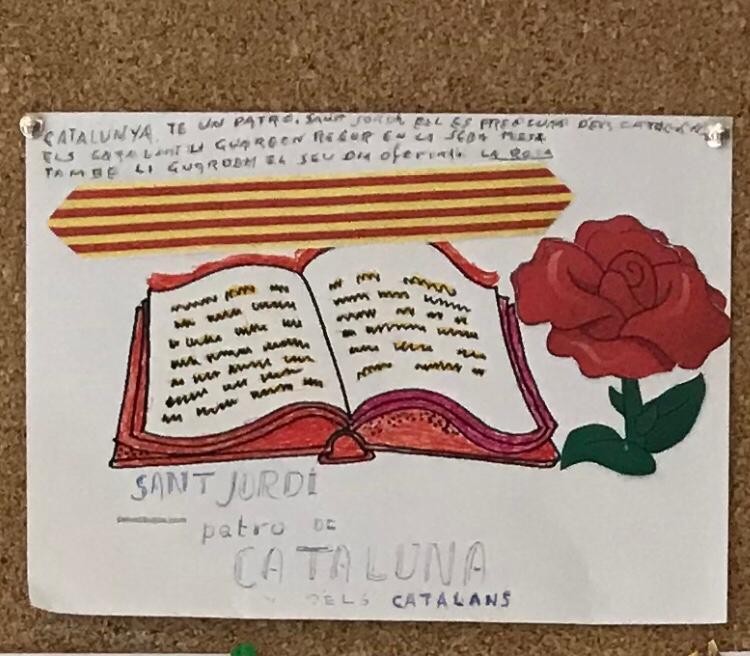 CATALUNYA TE UN PATRO. SANT JORDI ELL ES DELS CATALANS
ELS CATALANS LI GUARDEN EN LA SEVA
TAMBE LI GUARDEM EL SEU DIA Oferint LA ROSA
SANT JORDI
patro DE
CATALUNA
DELS CATALANS